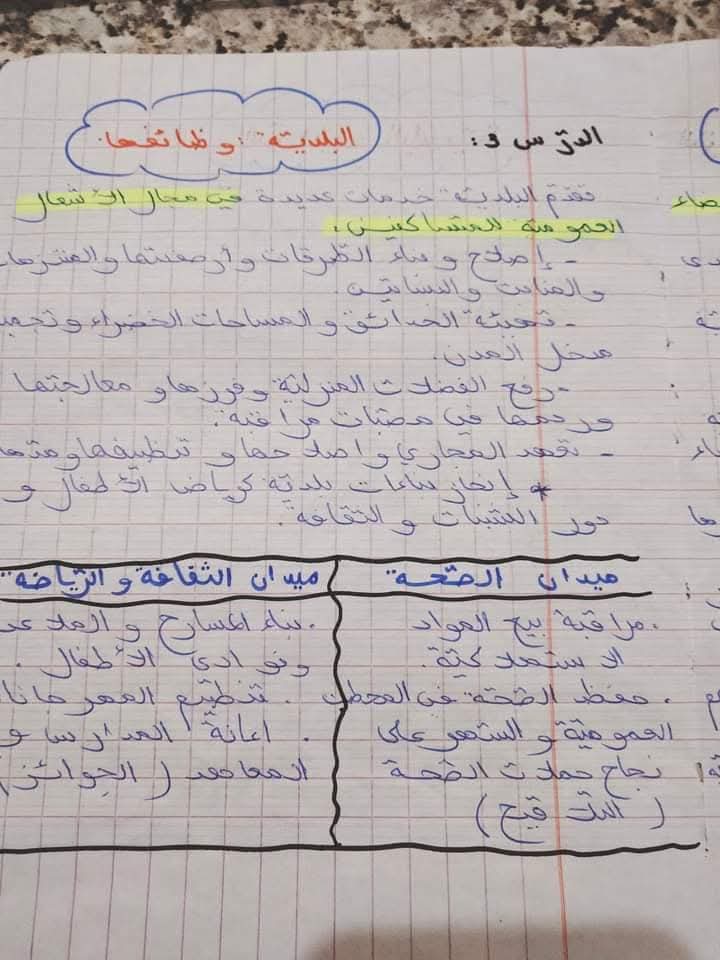 الدرس 3: البلدية: وظائفها.
تقدم البلدية خدمات عديدة في مجال الأشغال
العمومية للمتساكنين:
- إصلاح و بناء الطرقات وأرصفتها والمنتزهات
والمنابت والبساتين.
- تهيئة الحدائق و المساحات الخضراء و تجميل
مدخل المدن.
- رفع الفضلات المنزلية و فرزها و معالجتها
وردمها في مصبات مراقبة.
- تعهد المجاري و اصلاحها و تنظيفها و
* إنجاز بناءات بلدية كرياض الأطفال و
دور الشباب و الثقافة.
ميدان الصحة
ميدان الثقافة و الرياضة
. مراقبة بيع المواد
الاستهلاكية.
. حفظ الصحة في المحطات
العمومية و السهر على
نجاح حملات الصحة
(التلاقيح)
. بناء المسارح و الملاعب
ونوادي الأطفال.
. تنظيم المهرجانات
. اعانة المدارس و
المعاهد (الجوائز)